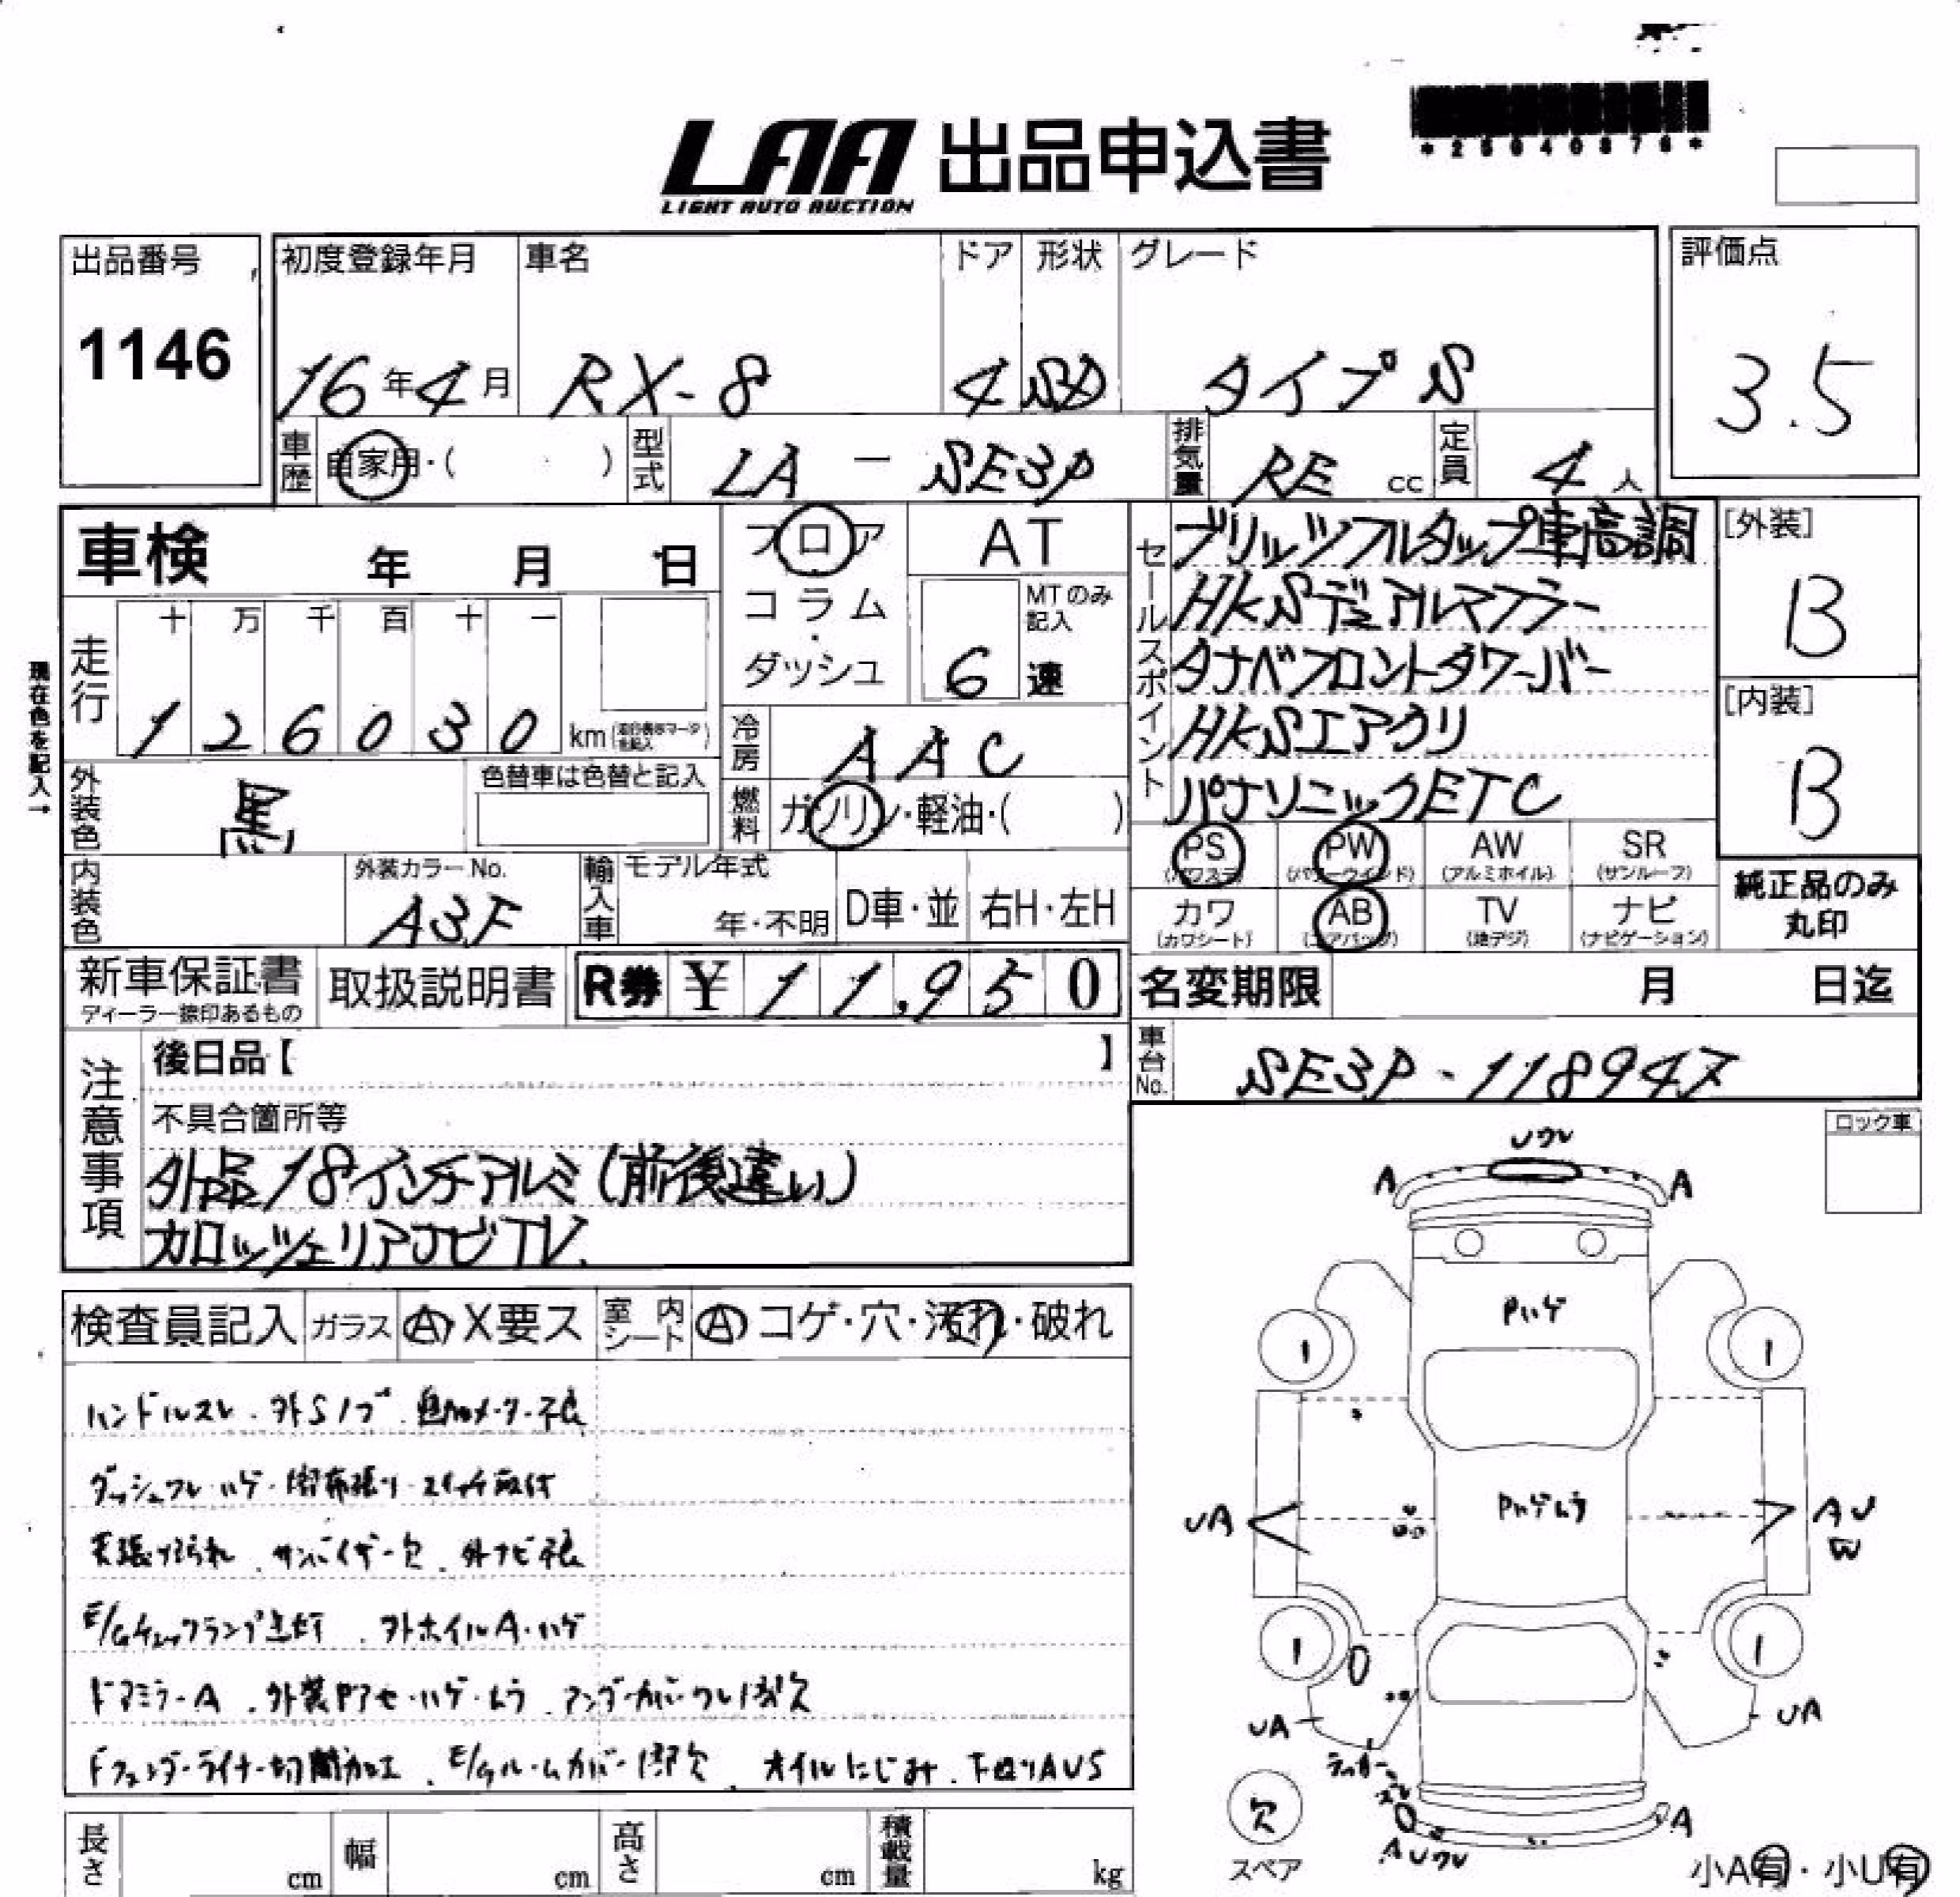 LAA 出品申込書
LIGHT AUTO AUCTION
*25040876*
出品番号
1146
初度登録年月 車名 ドア 形状 グレード
16年4月 RX-8 4 SD タイプS
評価点
3.5
車歴 自家用・( ) 型式 LA - SE3P 排気量 RE cc 定員 4人
車検 年 月 日
フロア
コラム
・
ダッシュ
AT
MTのみ記入
6速
セールスポイント
ブリッツフルタップ車高調
HKSデュアルマフラー
タナベフロントタワーバー
HKSエアクリ
パナソニックETC
[外装]
B
[内装]
B
現在色を記入→
走行 十 万 千 百 十 一
1 2 6 0 3 0 km
冷房 AAC
燃料 ガソリン・軽油・( )
外装色 黒 色替車は色替と記入
内装色 外装カラーNo. A3F
輸入車 モデル年式 年・不明 D車・並 右H・左H
PS (パワステ) PW (パワーウインド) AW (アルミホイル) SR (サンルーフ)
カワ (カワシート) AB (エアバッグ) TV (地デジ) ナビ (ナビゲーション)
純正品のみ
丸印
新車保証書 取扱説明書 R券 ¥11,950
ディーラー捺印あるもの
名変期限 月 日迄
車台No. SE3P-118947
注意事項
後日品【 】
不具合箇所等
外品18インチアルミ(前後違い)
カロッツェリアナビTV.
ロック車
検査員記入 ガラス A X要ス 室内シート A コゲ・穴・汚れ・破れ
ハンドルスレ・外Sノブ・メーター不良
ダッシュワレ・ハゲ・1部布張り・スイッチ取付
サンバイザー欠 外ナビ不良
E/Gチェックランプ点灯 外ホイルA・ハゲ
ドアミラーA 外装Pアセ・ハゲ・ムラ アンダーカバーワレ1部欠
Fフェンダーライナー切開加工 E/Gルームカバー1部欠 オイルにじみ 下回りAUS
Uワレ
A A
Pハゲ
1 1
UA PハゲムラAU
W
1 1
UA UA
ステッカー
A
AUワレ
欠
スペア
小A有・小U有
長さ cm 幅 cm 高さ cm 積載量 kg